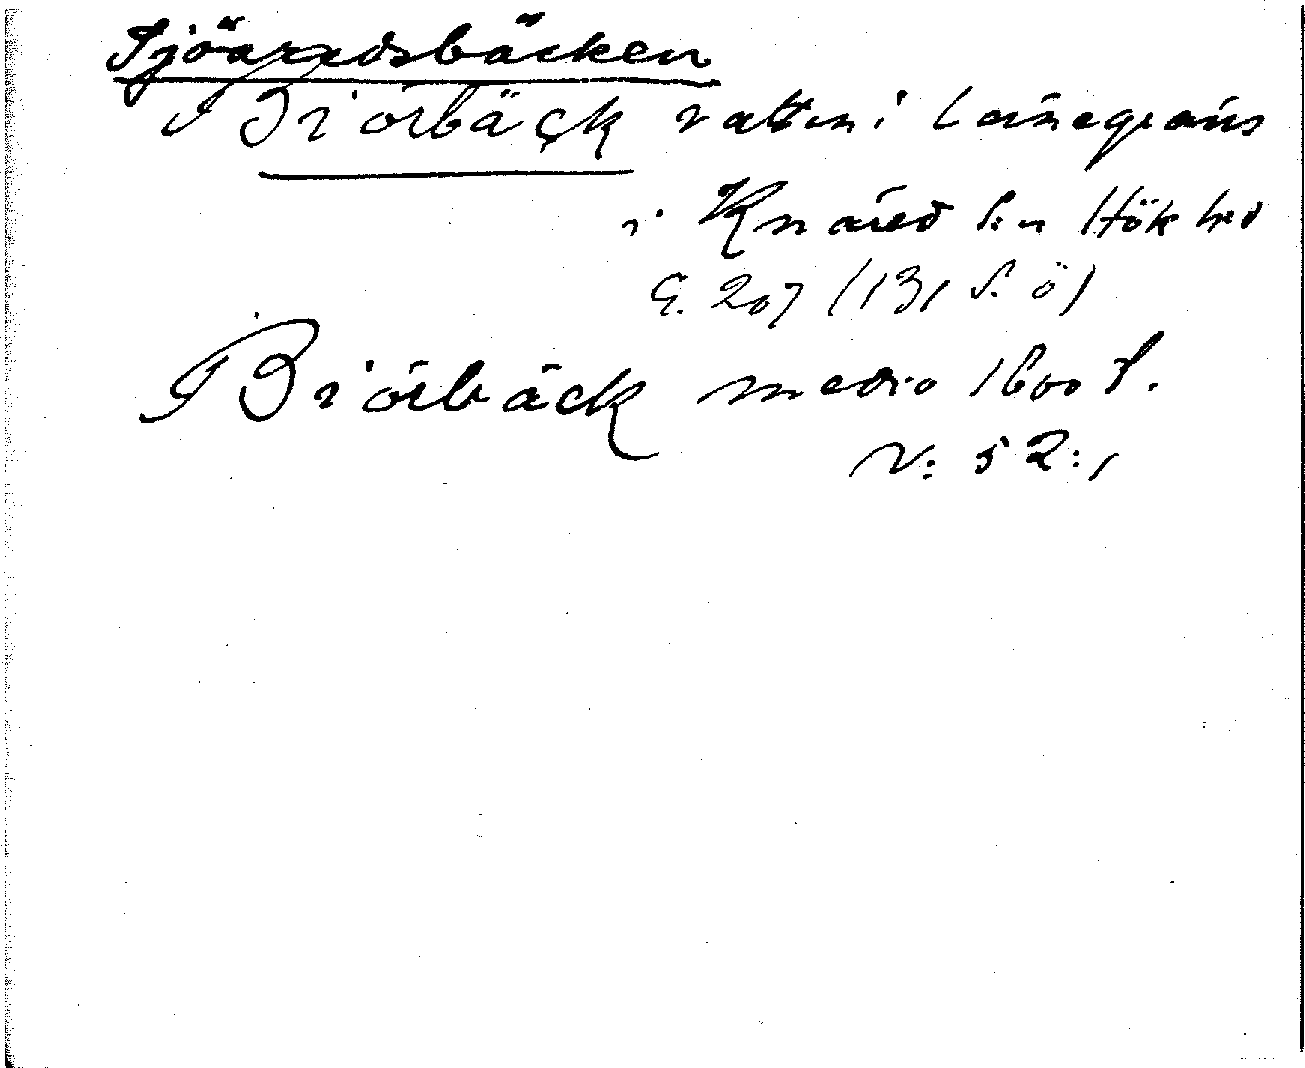 Sjöaredsbäcken
Biörbäck vatten i länegräns
i Knäred s:n Hök hrd
G. 207 (131 S. ö)
Biörbäck medio 1600 t.
V: 52:1